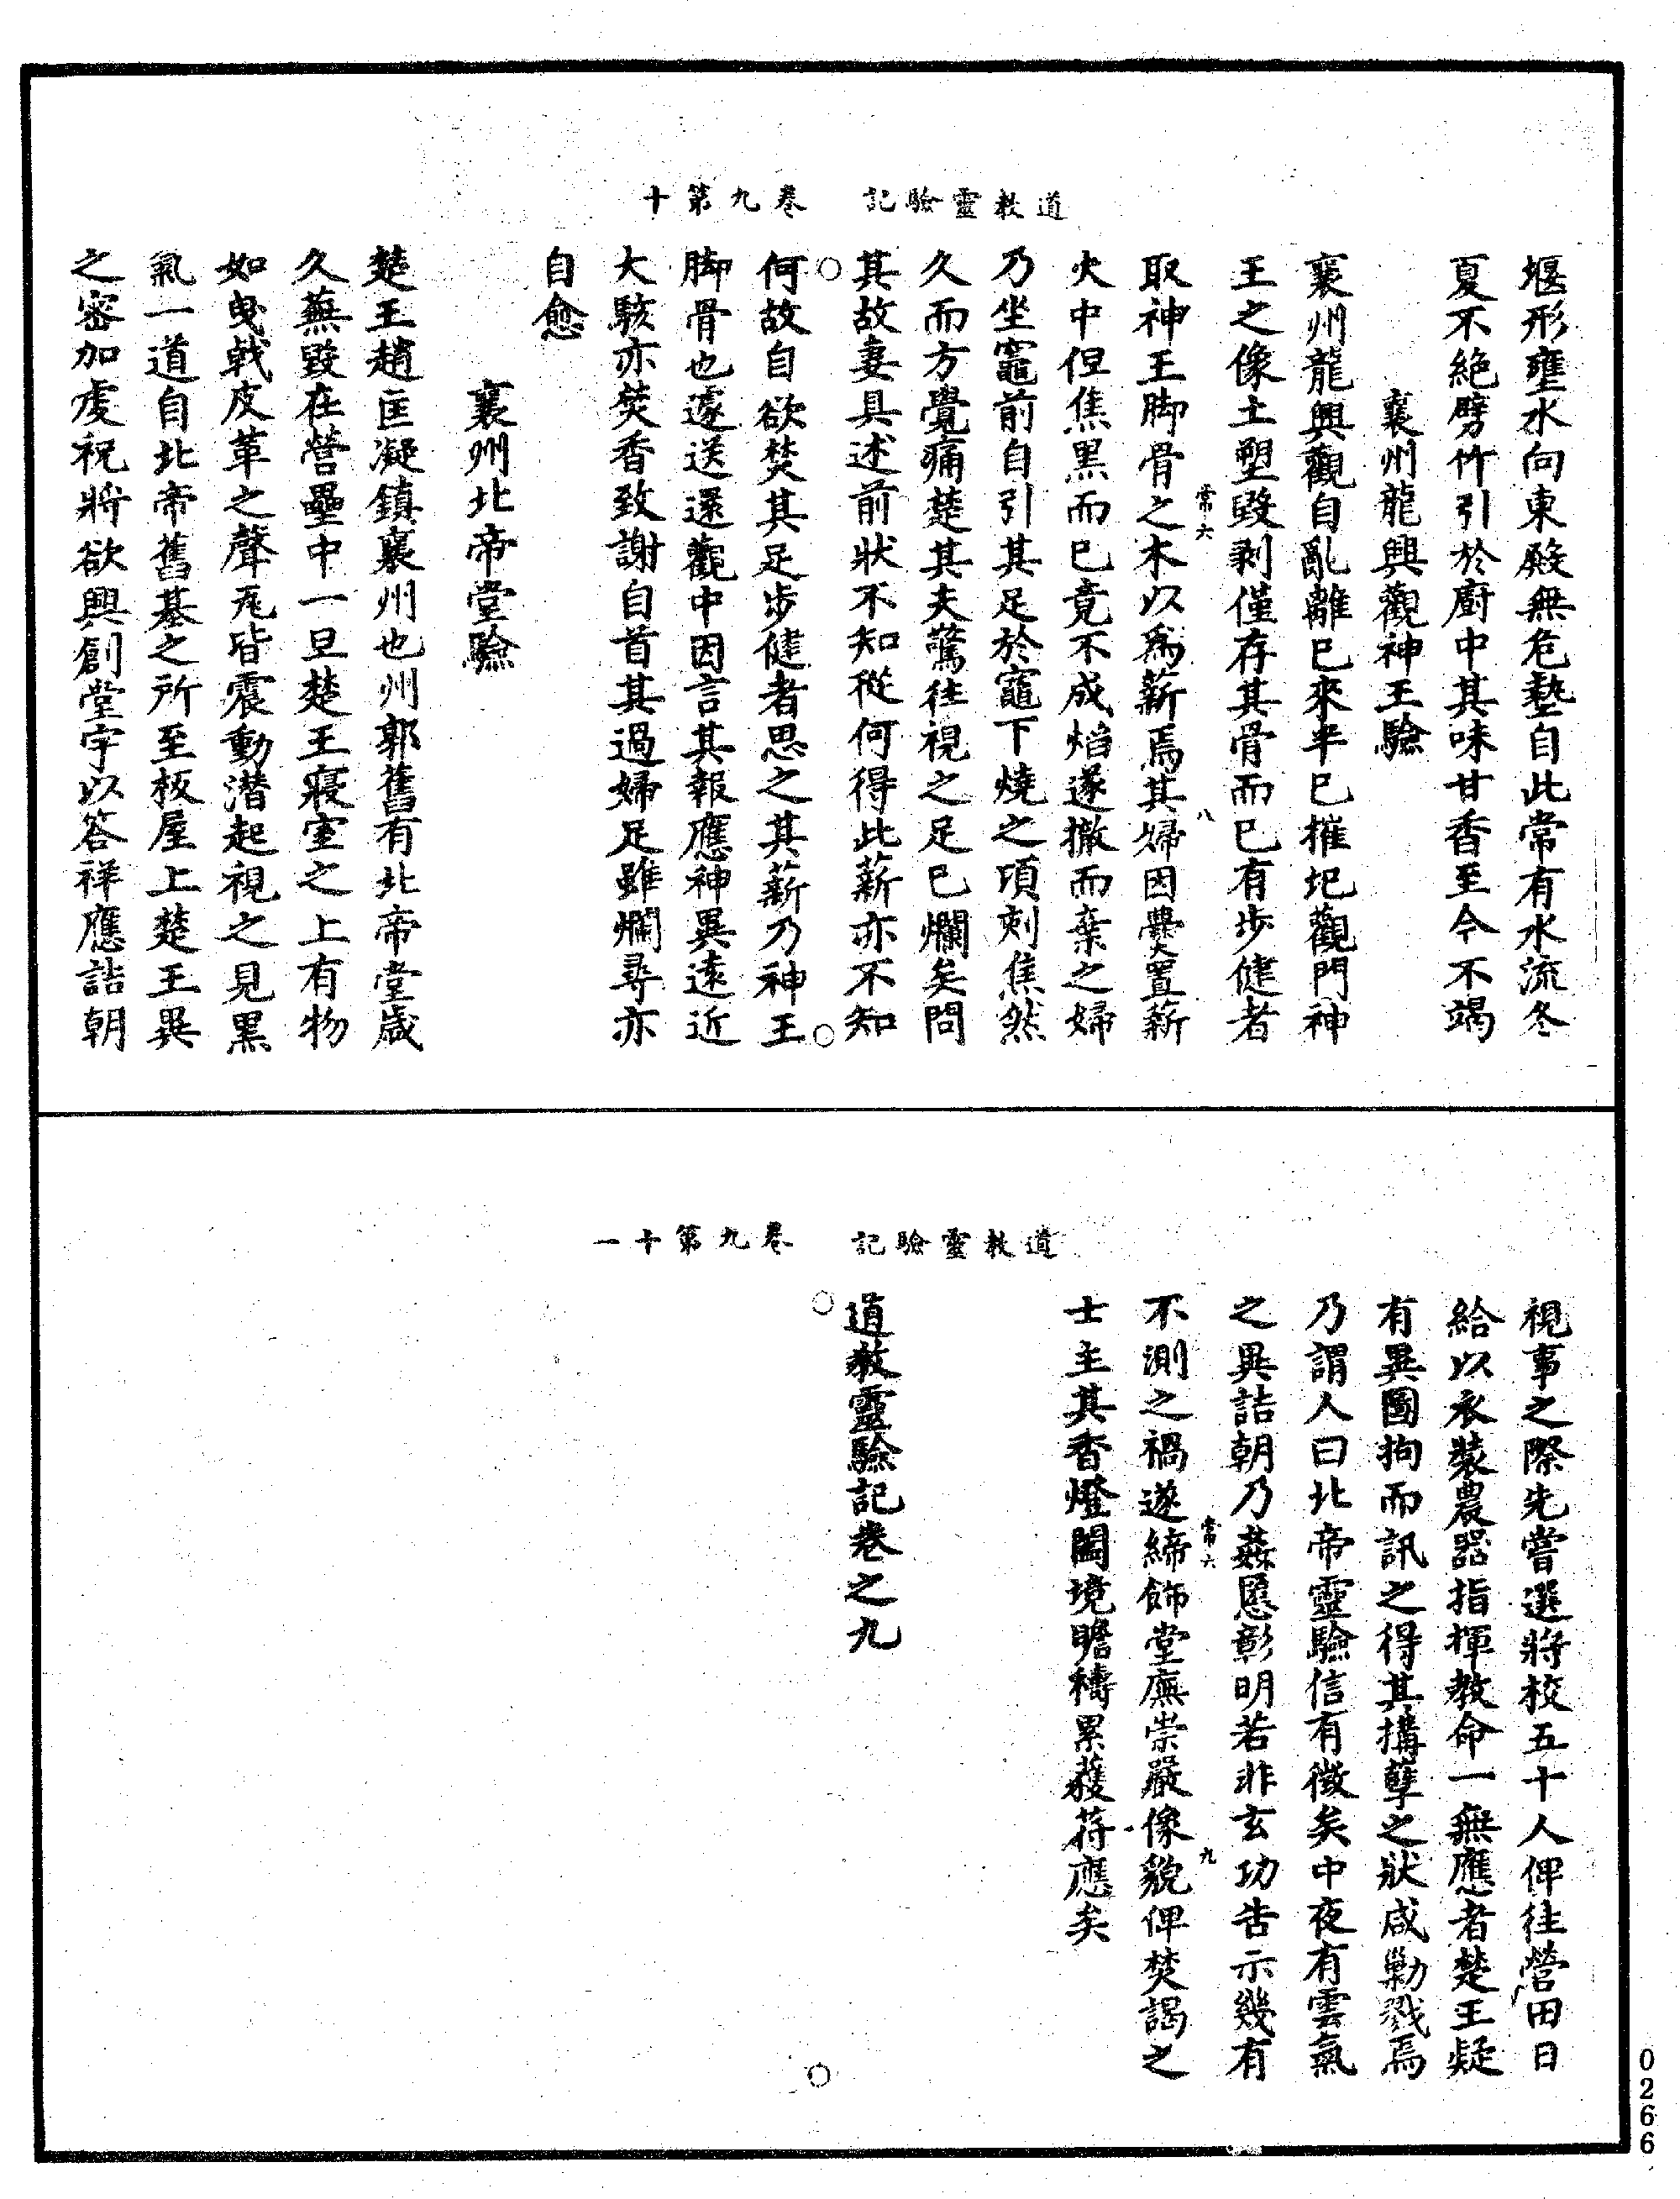 道教靈驗記　卷九第十
堰形壅水向東殿無危墊自此常有水流冬
夏不絶劈竹引於廚中其味甘香至今不竭
襄州龍興觀神王驗
襄州龍興觀自亂離已來半已摧圯觀門神
王之像土塑毀剥僅存其骨而已有步健者
取神王脚骨之木以爲薪焉其婦因爨置薪
常六　八
火中但焦黑而已竟不成焰遂撤而棄之婦
乃坐竈前自引其足於竈下燒之項刻焦然
久而方覺痛楚其夫驚往視之足已爛矣問
其故妻具述前狀不知從何得此薪亦不知
何故自欲焚其足步健者思之其薪乃神王
脚骨也遽送還觀中因言其報應神異遠近
大駭亦焚香致謝自首其過婦足雖爛尋亦
自愈
襄州北帝堂驗
楚王趙匡凝鎮襄州也州郭舊有北帝堂歲
久蕪毀在營壘中一旦楚王寢室之上有物
如曳戟皮革之聲瓦皆震動潜起視之見黑
氣一道自北帝舊基之所至板屋上楚王異
之密加虔祝將欲興創堂宇以答祥應詰朝
道教靈驗記　卷九第十一
視事之際先嘗選將校五十人俾往營田日
給以衣裝農器指揮教命一無應者楚王疑
有異圖拘而訊之得其搆孽之狀咸勦戮焉
乃謂人曰北帝靈驗信有徵矣中夜有雲氣
之異詰朝乃姦慝彰明若非玄功告示幾有
不測之禍遂締飾堂廡崇嚴像貌俾焚謁之
常六　九
士主其香燈闔境瞻禱累獲苻應矣
道教靈驗記卷之九
0266